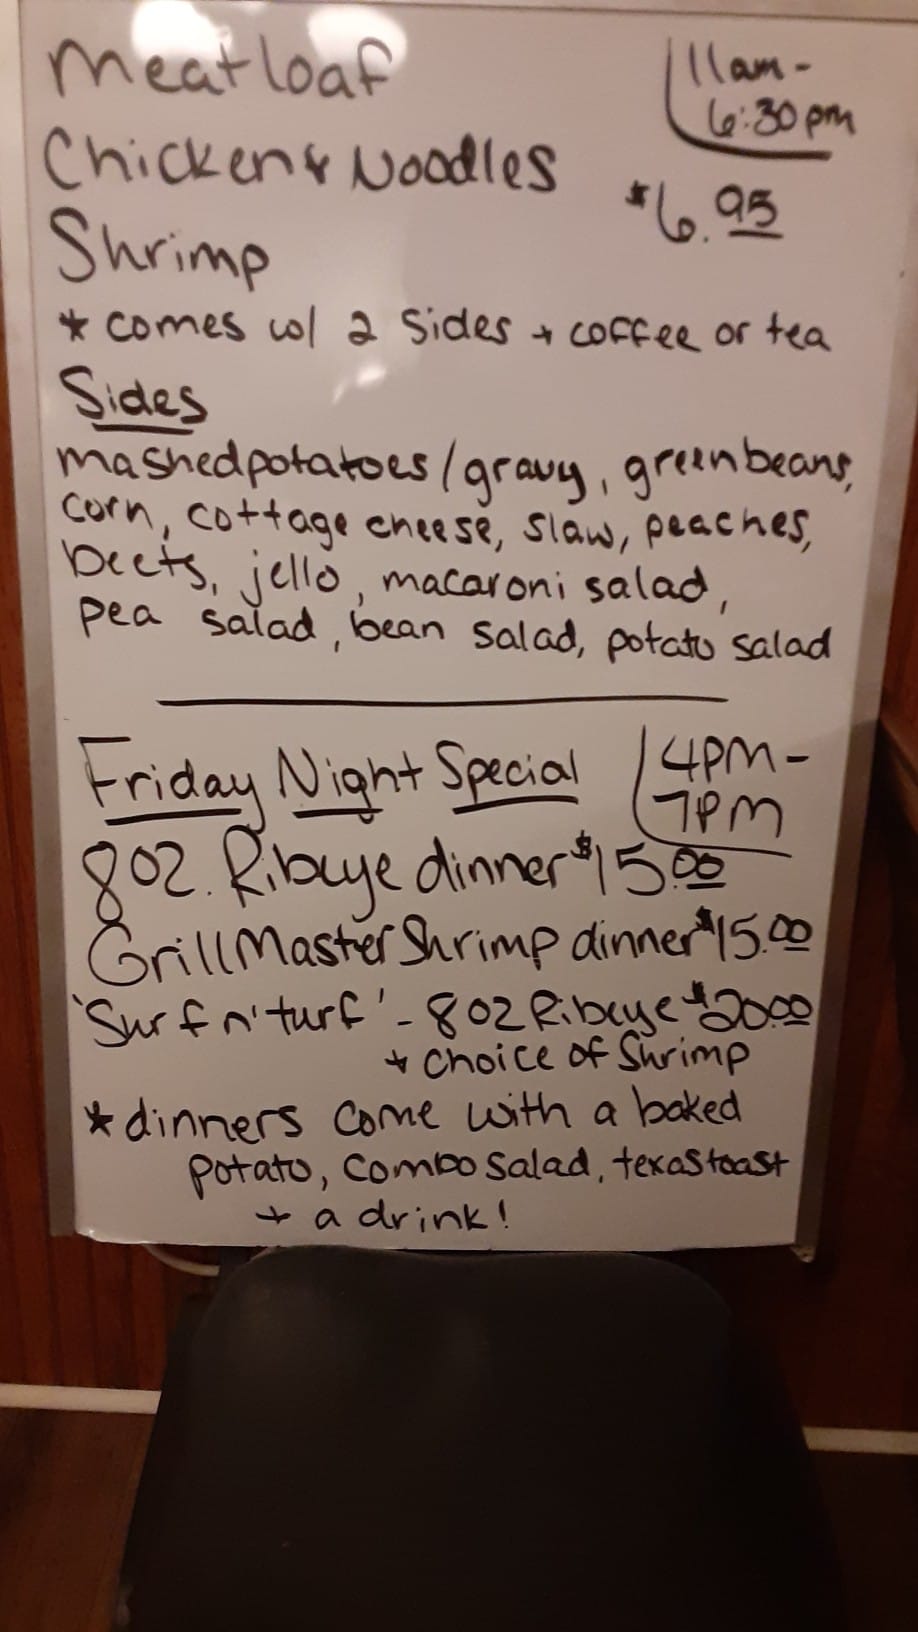 Meatloaf
11am-
6:30pm
Chicken & Noodles
$6.95
Shrimp
* comes w/ 2 Sides + coffee or tea
Sides
mashed potatoes/gravy, green beans,
corn, cottage cheese, slaw, peaches,
beets, jello, macaroni salad,
pea salad, bean salad, potato salad
Friday Night Special
4PM-
7PM
8oz. Ribeye dinner $15.00
Grill Master Shrimp dinner $15.00
'Surf n' turf' - 8oz Ribeye $20.00
+ choice of Shrimp
* dinners come with a baked
potato, combo salad, texas toast
+ a drink!